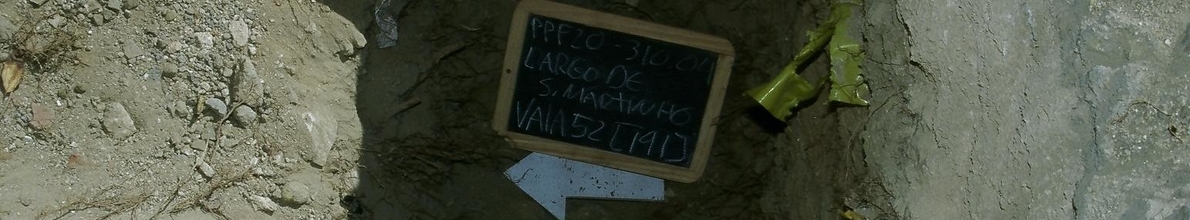 PPF20-310.01
LARGO DE
S. MARTINHO
VALA 52 [191]